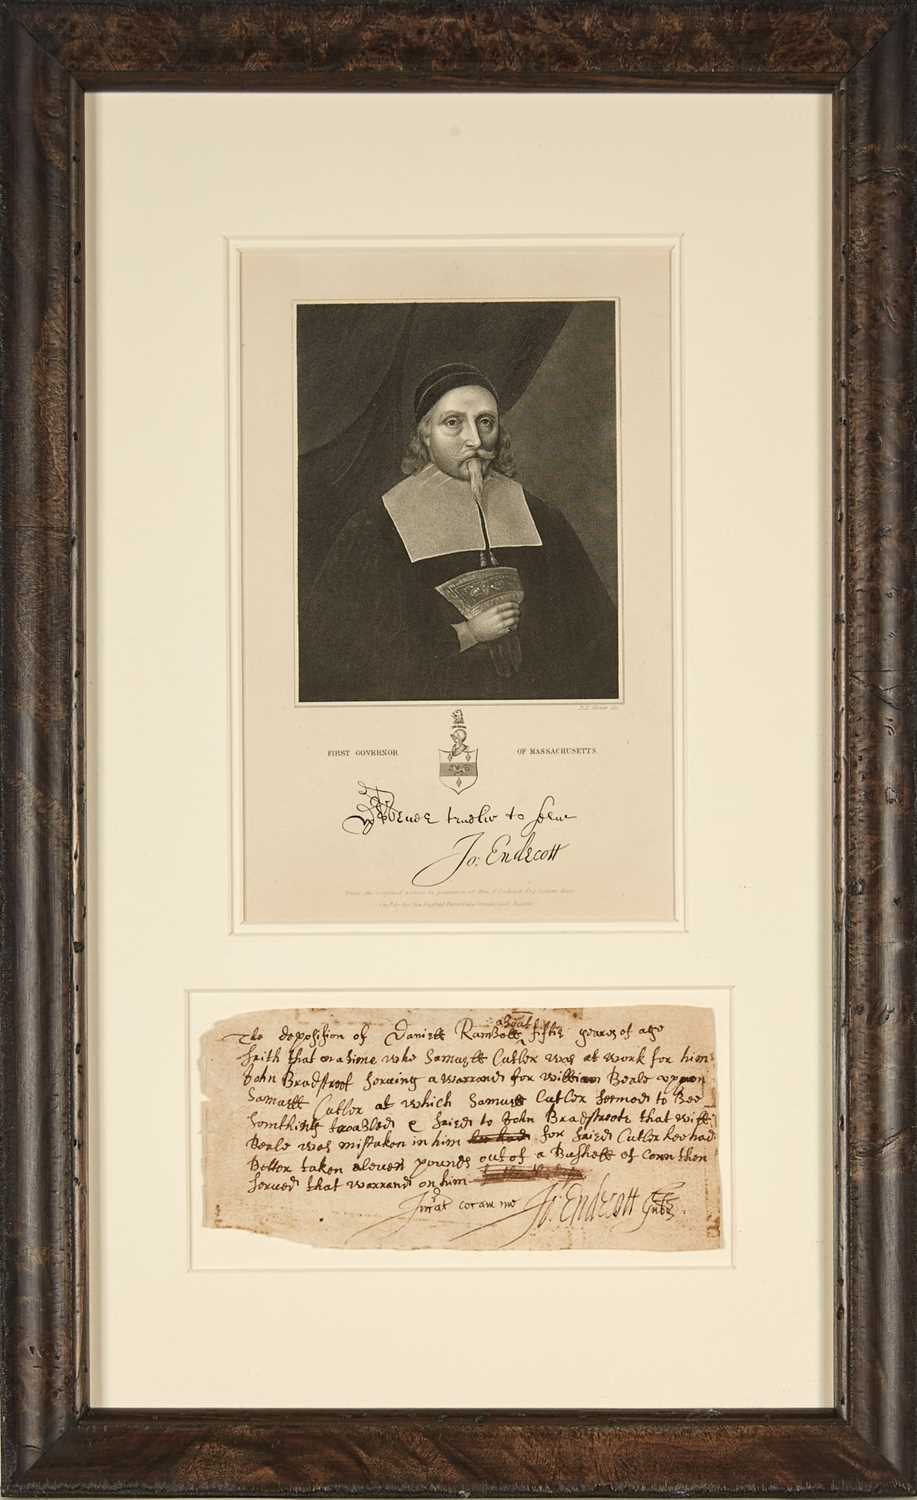 FIRST GOVERNOR OF MASSACHUSETTS.
to
Jo: Endecott
The deposition of Daniell Rumboll about fiftie yeares of age
saith that on a time when Samuell Cutler was at work for him
John Bradstreet serving a warrand for William Beale uppon
Samuell Cutler at which Samuell Cutler seemed to bee
somthing troabled & saied to John Bradstreete that will:
Beale was mistaken in him for saied Cutler hee had
Better taken eleven pounds out of a Bushell of Corn then
served that warrand on him
Jurat coram me Jo: Endecott